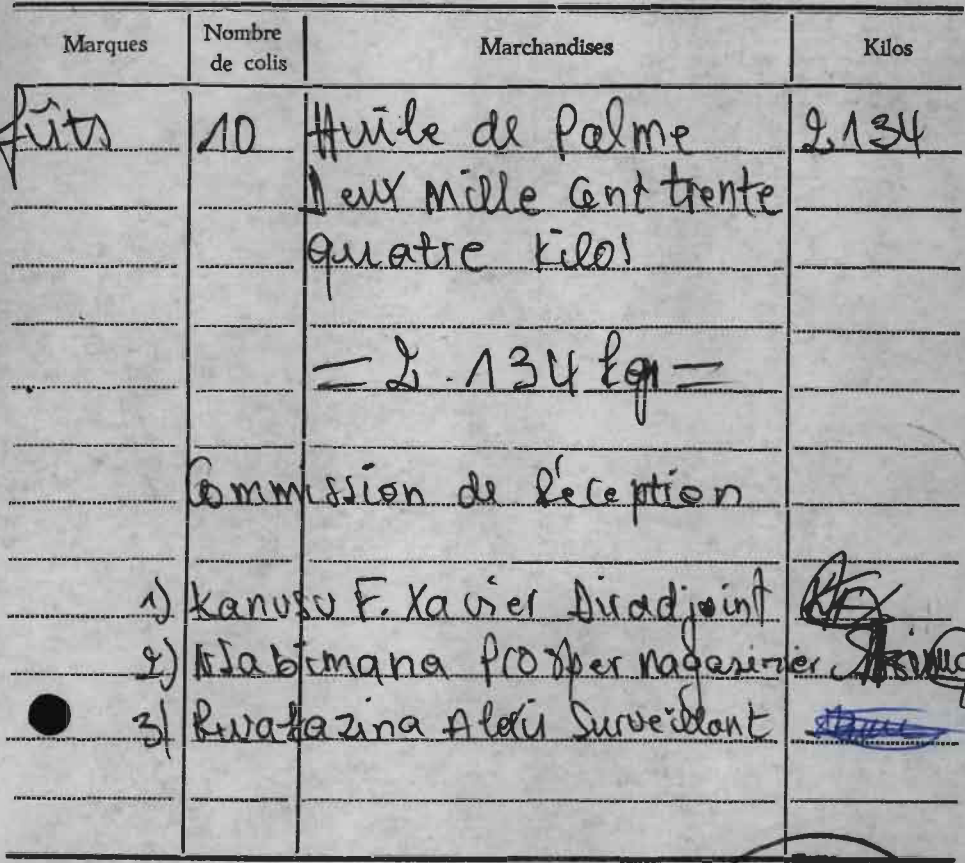 Marques Nombre de colis Marchandises Kilos
fûts 10 Huile de Palme 2.134
Deux mille Cent trente
quatre kilos
= 2.134 kgs =
Commission de Réception
1) Kanusu F. Xavier Dir adjoint
2) Nsabimana Prosper magasinier
3) Alexis Surveillant